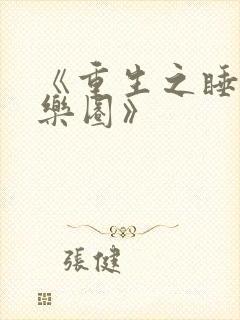 《重生之睡
樂園》
張健